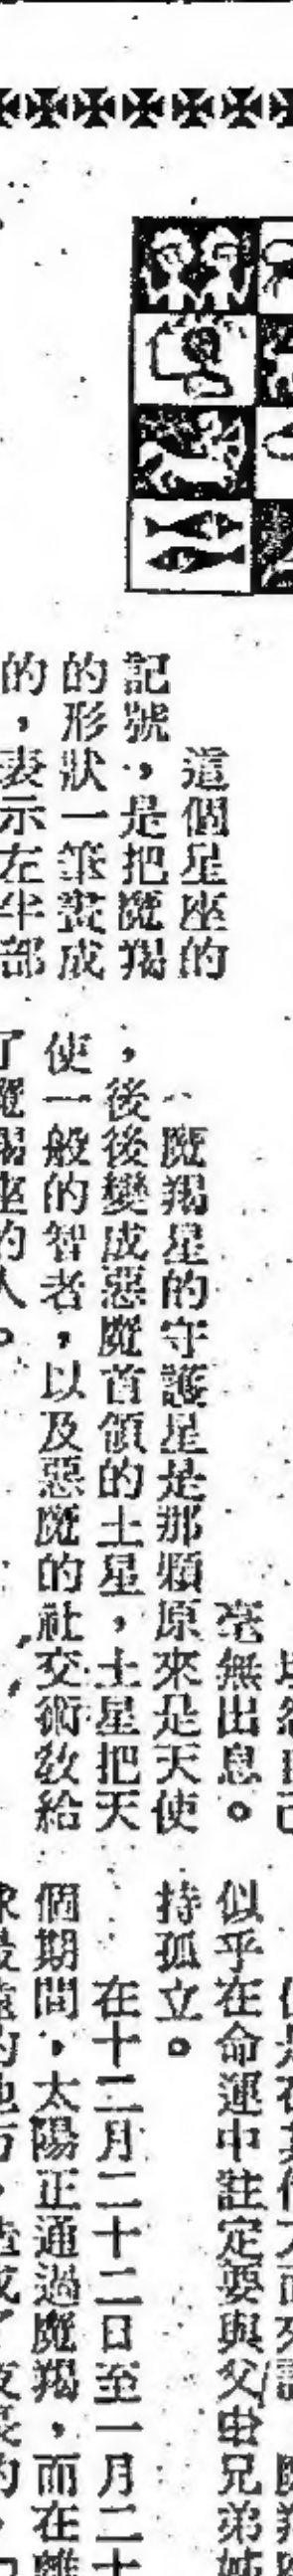 這個星座的
記號，是把魔羯
的形狀一筆畫成
的，表示左半部
魔羯星的守護星是那顆原來是天使
，後後變成惡魔首領的土星，土星把天
使一般的智者，以及惡魔的社交術教給
了魔羯座的人。
毫無出息。
似乎在命運中註定要與父母兄弟姊
持孤立。
在十二月二十二日至一月二十
個期間，太陽正通過魔羯，而在離